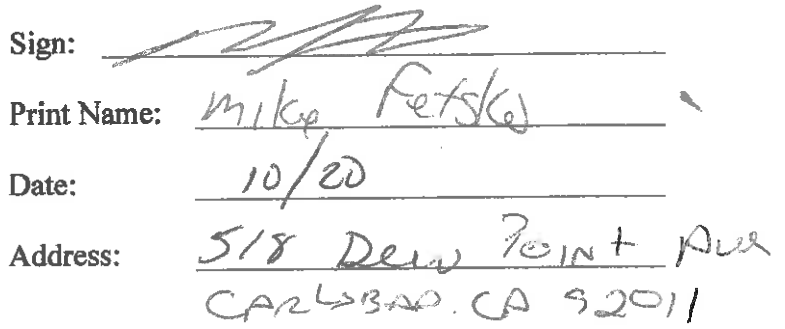 Sign:
Print Name: Mike Fetsko
Date: 10/20
Address: 518 Dew Point Ave
CARLSBAD. CA 92011